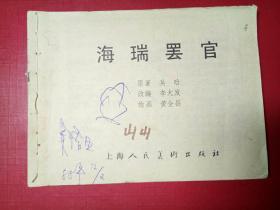 海瑞罢官
原著 吴晗
改编 李大发
绘画 黄全昌
山山
上海人民美术出版社